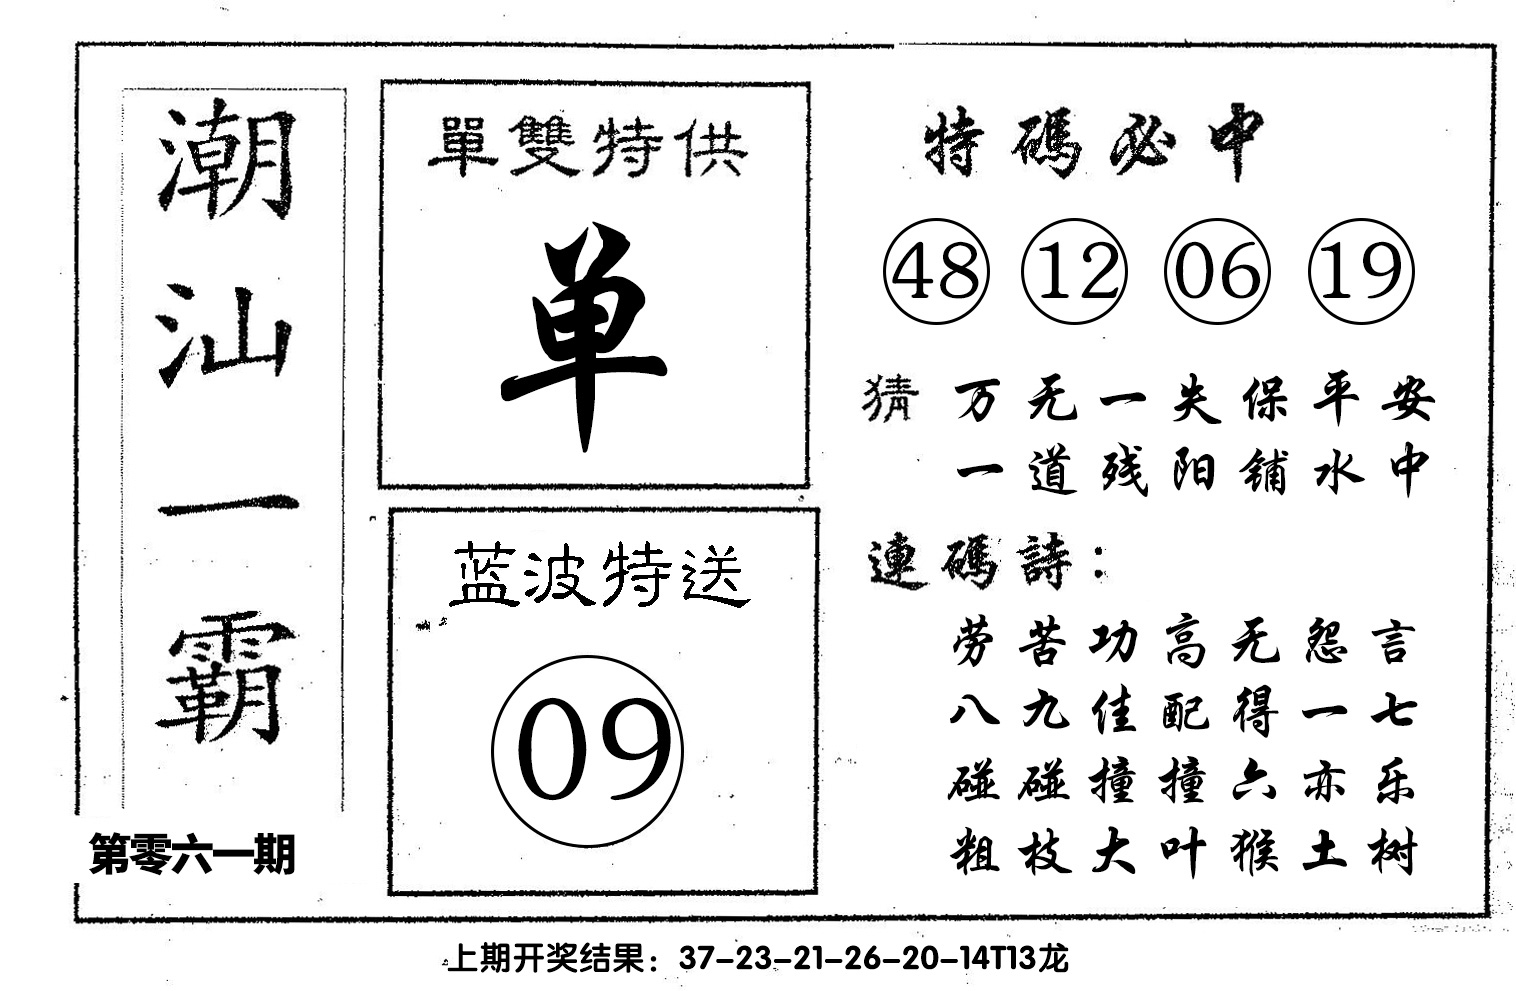 潮汕一霸
第零六一期
單雙特供
单
蓝波特送
09
特碼必中
48 12 06 19
猜 万无一失保平安
一道残阳铺水中
連碼詩：
劳苦功高无怨言
八九佳配得一七
碰碰撞撞六亦乐
粗枝大叶猴土树
上期开奖结果：37-23-21-26-20-14T13龙